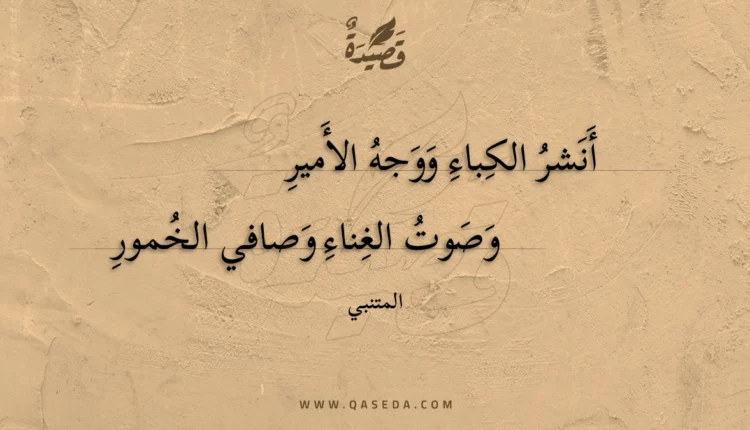 قَصِيْدَةٌ
أَنَشرُ الكِباءِ وَوَجهُ الأَميرِ
وَصَوتُ الغِناءِ وَصافي الخُمورِ
المتنبي
WWW.QASEDA.COM